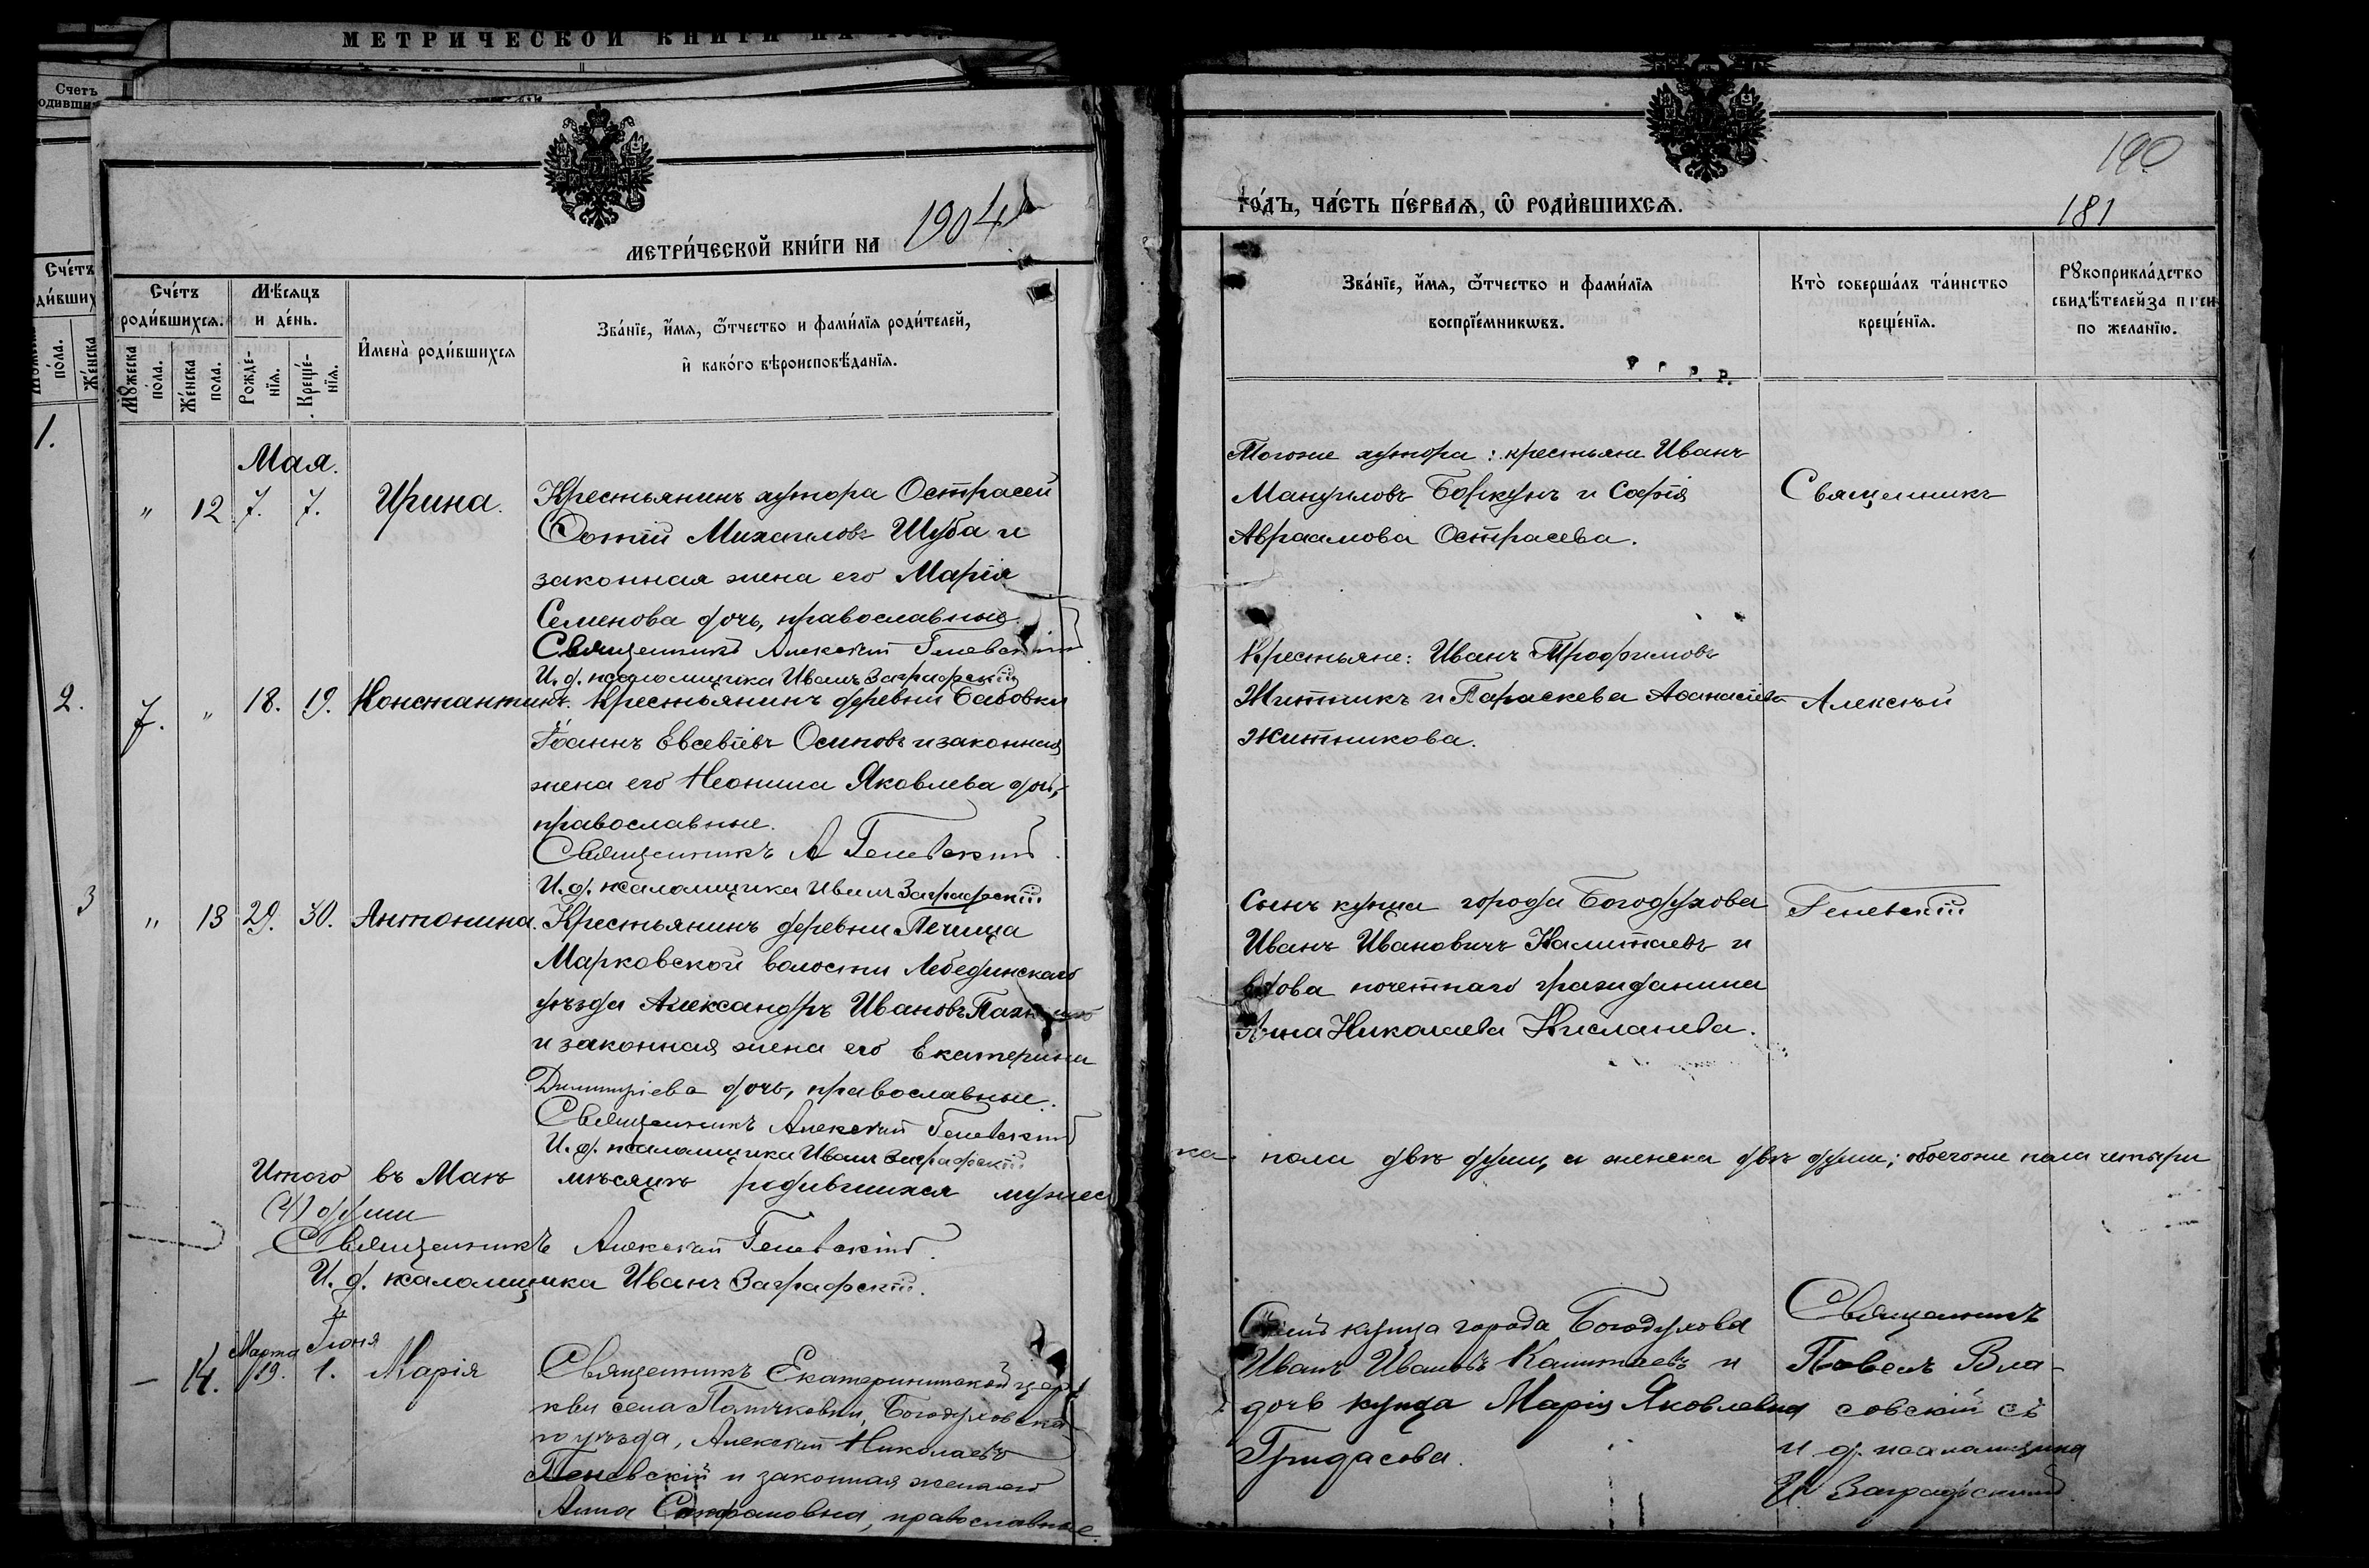 МЕТРИЧЕСКОЙ КНИГИ НА
Счетъ
Сче́тъ
пола.
Же́нска
1.
2.
3
метри́ческой кни́ги на 1904
Сче́тъ роди́вшихся.
Мѣ́сяцъ и де́нь.
Мꙋ́жеска пола.
Же́нска пола.
Рожде́нїя.
Креще́нїя.
И҆мена̀ роди́вшихся
Зва́нїе, и҆́мя, ѻ҆́тчество и фами́лїя роди́телей,
и҆ како́го вѣроисповѣ́данїя.
Мая.
" 12 7. 7. Ирина.
Крестьянинъ хутора Острасей
Фотій Михаиловъ Шуба и
законная жена его Марія
Семенова дочь, православные.
Священникъ Алексѣй Геневскій
И. д. псаломщика Иванъ Заграфскій
7. " 18. 19. Константинъ.
Крестьянинъ деревни Бабовки
Іоаннъ Евсевіевъ Осиповъ и законная
жена его Неонила Яковлева дочь,
православные.
Священникъ А Геневскій
И. д. псаломщика Иванъ Заграфскій
" 13 29. 30. Антонина.
Крестьянинъ деревни Печища
Марковской волости Лебединскаго
уѣзда Александръ Ивановъ
и законная жена его Екатерина
Димитріева дочь, православные.
Священникъ Алексѣй Геневскій
И. д. псаломщика Иванъ Заграфскій
Итого въ Маѣ мѣсяцѣ родившихся мужес
(4) души
Священникъ Алексѣй Геневскій.
И. д. псаломщика Иванъ Заграфскій.
Марта Іюня
— 14. 19. 1. Марія
Священникъ Екатерининской цер
кви села Полковки, Богодуховска
го уѣзда, Алексѣй Николаевъ
Геневскій и законная жена его
Анна Стефановна, православные.
190
181
го́дъ, ча́сть пе́рваѧ, ѡ҆ роди́вшихсѧ.
Зва́нїе, и҆́мя, ѻ҆́тчество и фами́лїя
воспрїе́мникѡвъ.
Кто̀ соверша́лъ та́инство
креще́нїя.
Рꙋкоприкла́дство
свидѣ́телей за п си
по жела́нїю.
Тогоже хутора: крестьяне Иванъ
Мануиловъ и Софія
Авраамова Острасева.
Крестьяне: Иванъ Трофимовъ
Житникъ и Параскева Аѳанасіева
Житникова.
Сынъ купца города Богодухова
Иванъ Ивановичъ Капитаевъ и
вдова почетнаго гражданина
Анна Николаева
Священникъ
Алексѣй
Геневскій
ка пола двѣ души, а женска двѣ души; обоегоже пола четыре
Сынъ купца города Богодухова
Иванъ Ивановъ Капитаевъ и
дочь купца Марія Яковлевна
Гридасова.
Священникъ
Павелъ Вла-
совскій съ
и д. псаломщика
И. Заграфскимъ